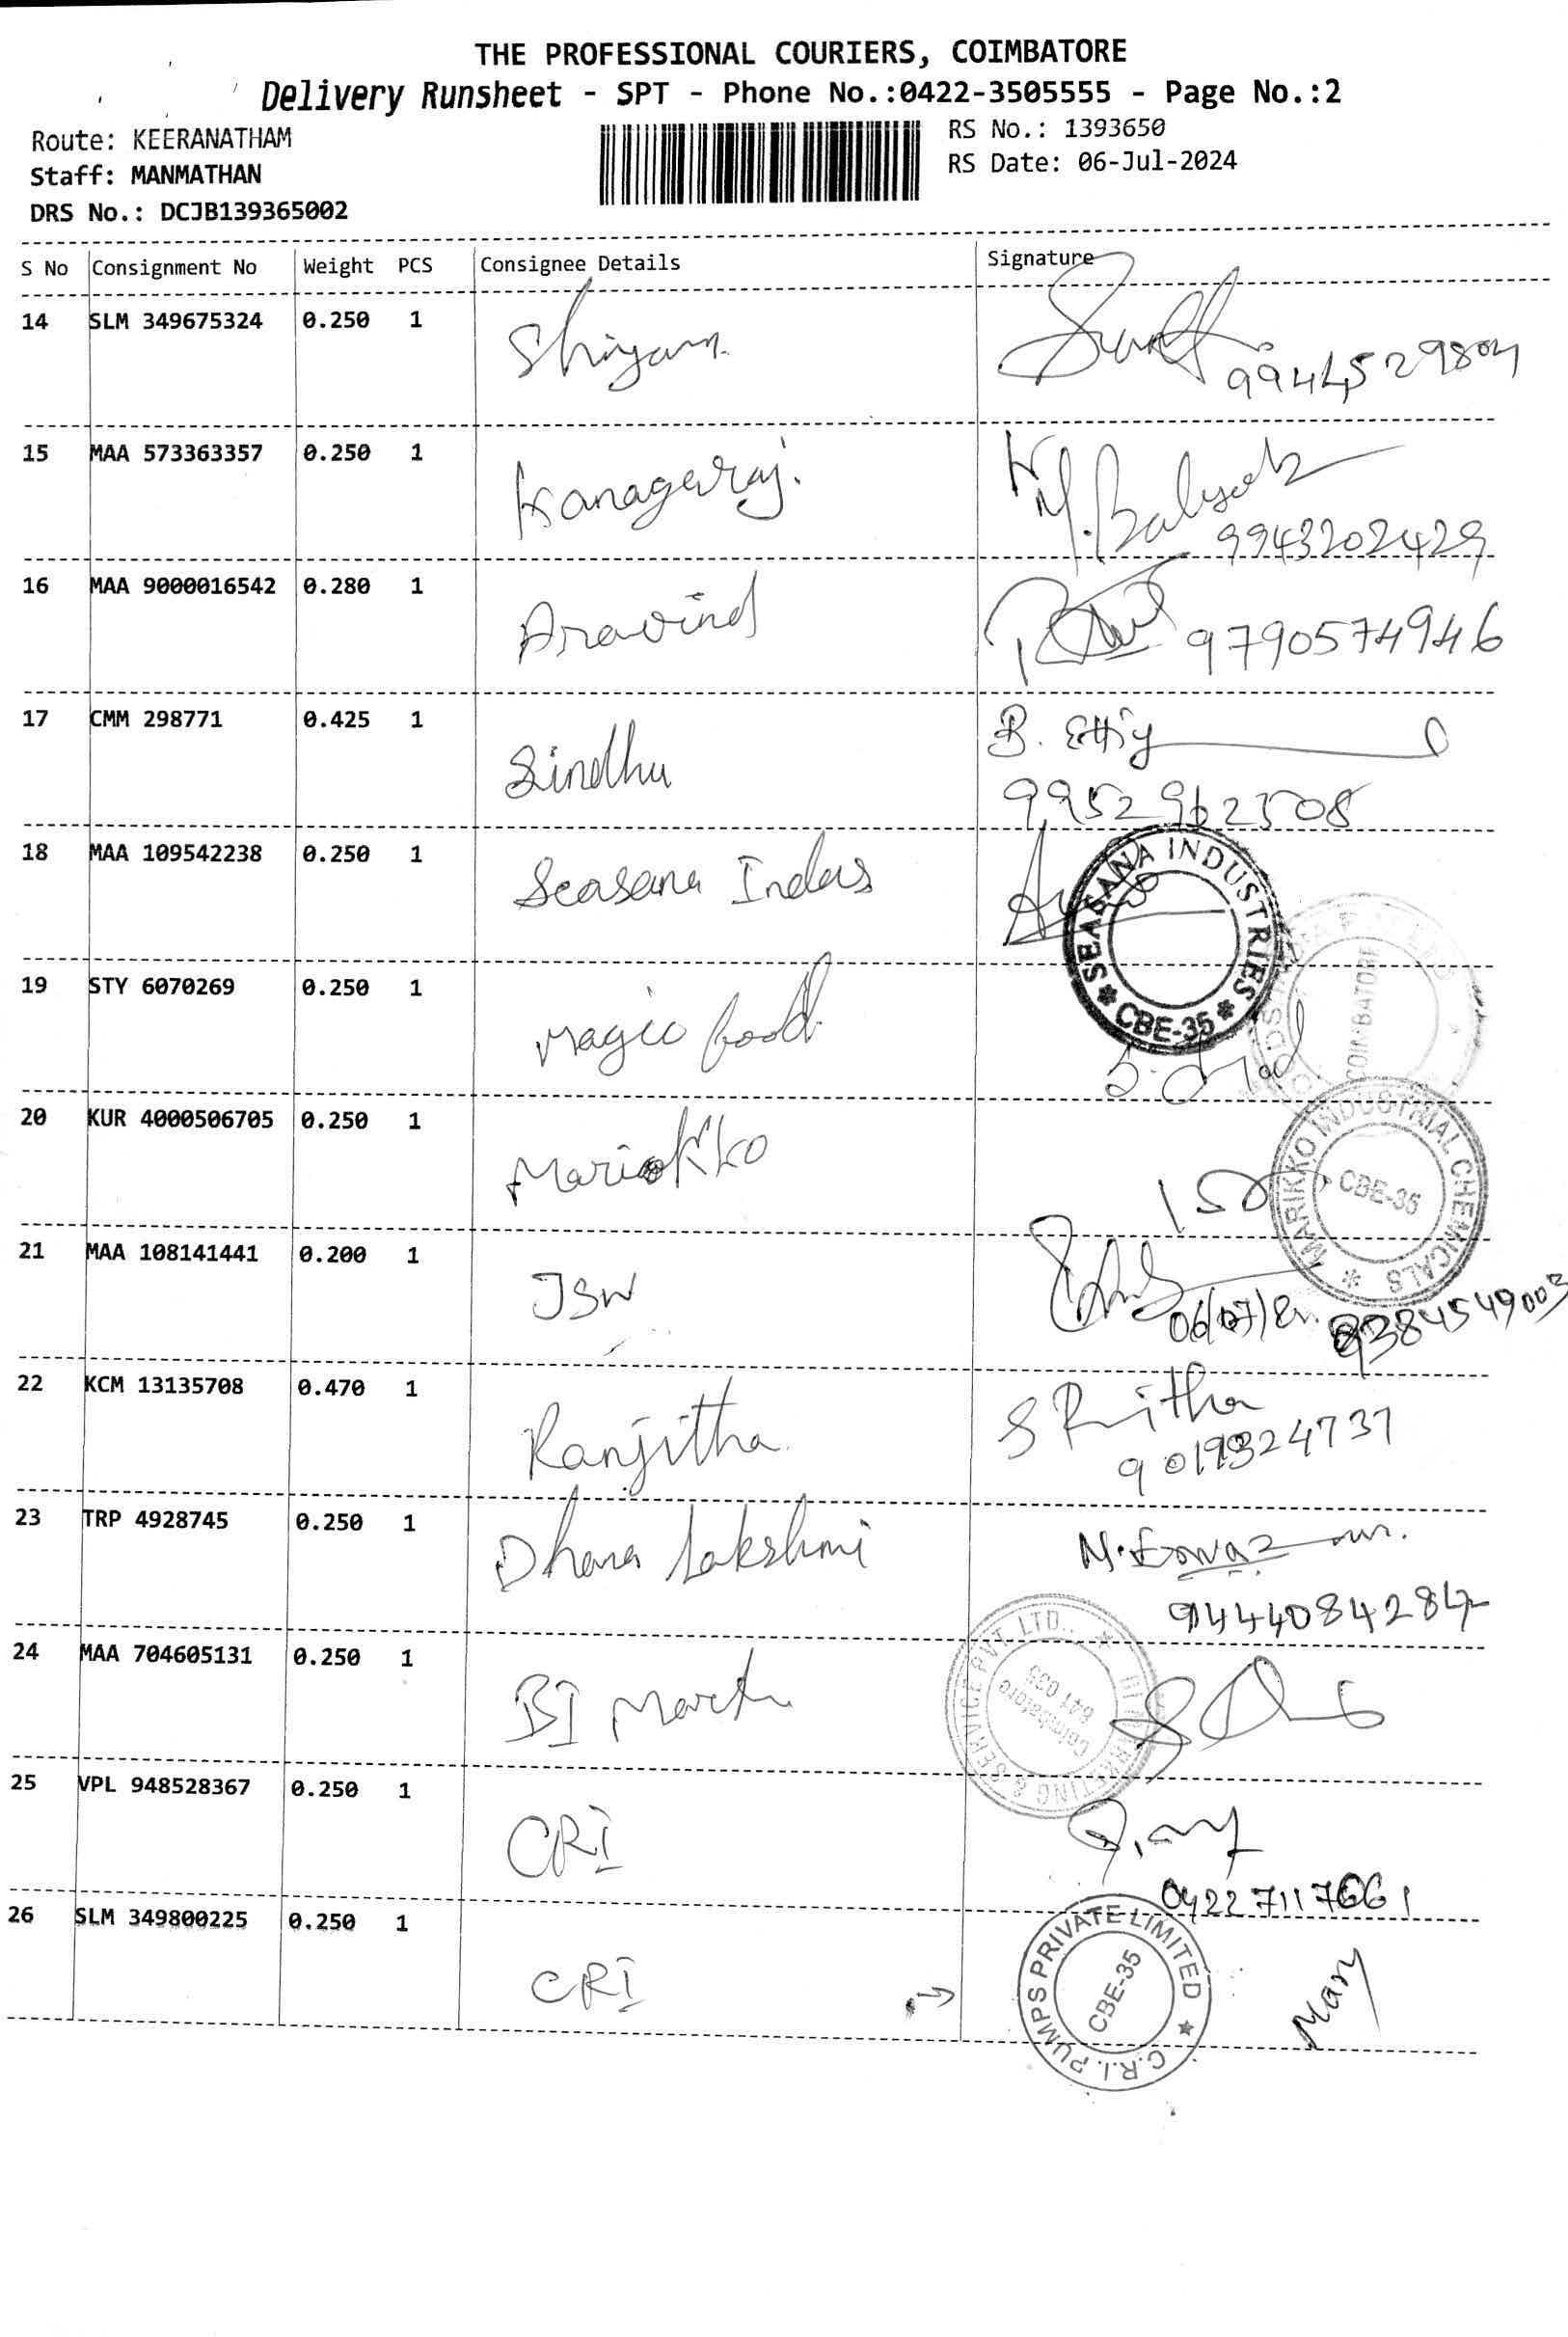 THE PROFESSIONAL COURIERS, COIMBATORE
Delivery Runsheet - SPT - Phone No.:0422-3505555 - Page No.:2
Route: KEERANATHAM
RS No.: 1393650
Staff: MANMATHAN
RS Date: 06-Jul-2024
DRS No.: DCJB139365002
S No Consignment No Weight PCS Consignee Details Signature
14 SLM 349675324 0.250 1 Shiyam
15 MAA 573363357 0.250 1 Kanagaraj.
9943202429
16 MAA 9000016542 0.280 1 Aravind
9790574946
17 CMM 298771 0.425 1 Sindhu
9952962508
18 MAA 109542238 0.250 1 Seasana Indus
SEASANA INDUSTRIES * CBE-35 *
19 STY 6070269 0.250 1 Magic food
COIMBATORE
20 KUR 4000506705 0.250 1 Marikko
MARIKKO INDUSTRIAL CHEMICALS * CBE-35
21 MAA 108141441 0.200 1 JSW
9384549003
22 KCM 13135708 0.470 1 Ranjitha
23 TRP 4928745 0.250 1 Dhana Lakshmi
24 MAA 704605131 0.250 1 BI Mark
MARKETING & SERVICE PVT. LTD., *
Coimbatore
641 035
25 VPL 948528367 0.250 1 CRI
04227117661
26 SLM 349800225 0.250 1 CRI
C.R.I. PUMPS PRIVATE LIMITED ★ CBE-35
Mary